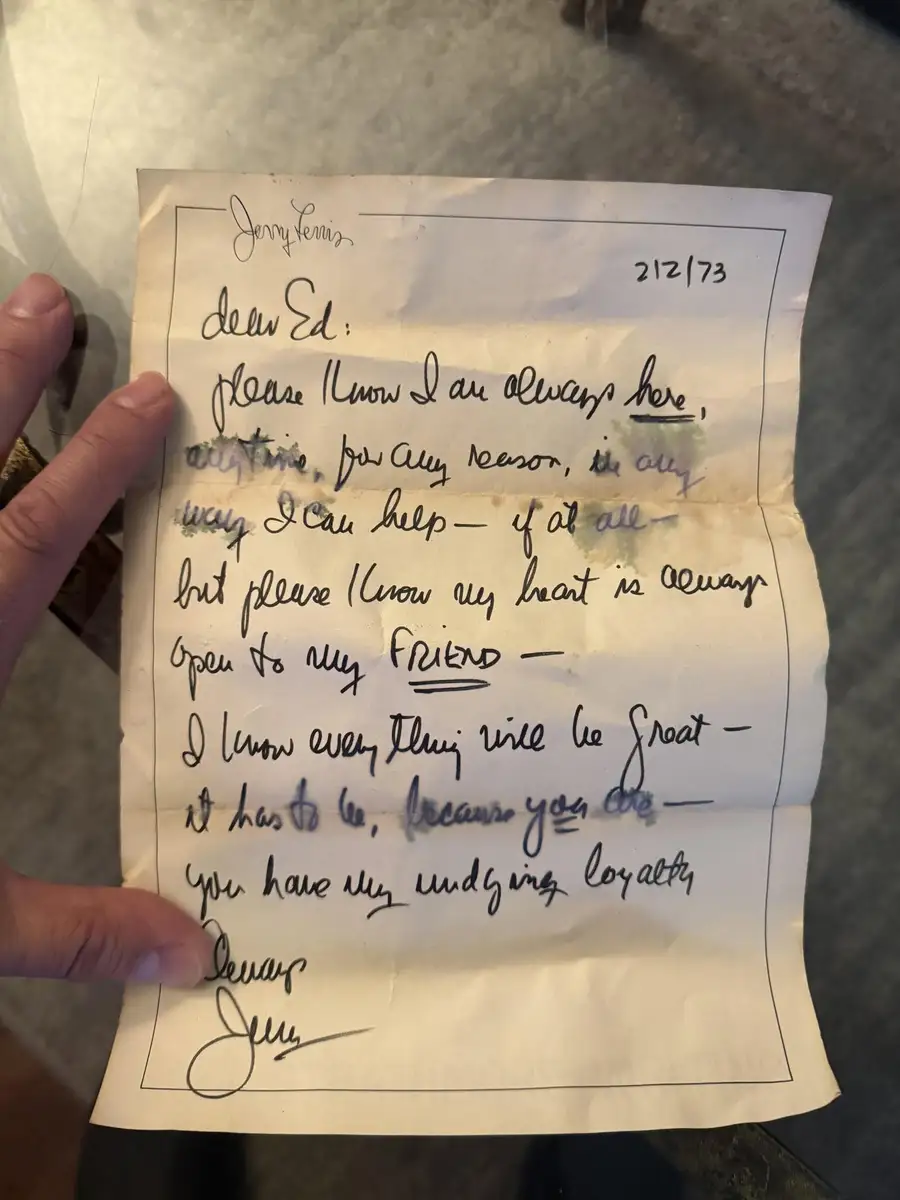 Jerry Lewis
212/73
dear Ed:
please know I am always here,
anytime, for any reason, in any
way I can help— if at all—
but please know my heart is always
open to my FRIEND —
I know everything will be great —
it has to be, because you are —
you have my undying loyalty
Always
Jerry